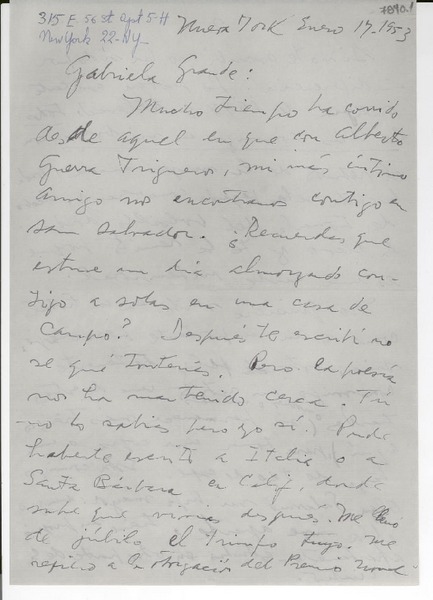 315 E. 56 st Apt 5-H
New York 22-NY
Nueva York Enero 17-1953
7890.1
Gabriela Grande:
Mucho tiempo ha corrido
desde aquel en que con Alberto
Guerra Trigueros, mi más íntimo
amigo nos encontramos contigo en
San Salvador. ¿Recuerdas que
estuve un día almorzando con-
tigo a solas en una casa de
campo? Después te escribí no
se qué tonterías. Pero la poesía
nos ha mantenido cerca. Tú
no lo sabías pero yo sí. Pude
haberte escrito a Italia o a
Santa Bárbara en Calif, donde
supe que vivías después. Me llenó
de júbilo el triunfo tuyo. Me
refiero a la otorgación del Premio Nobel